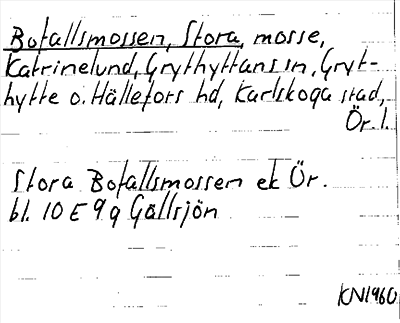 Botallsmossen, Stora, mosse,
Katrinelund, Grythyttans sn, Gryt-
hytte o. Hällefors hd, Karlskoga stad,
Ör. l.
Stora Botallsmossen ek Ör.
bl. 10 E 9 g Gällsjön
KN1960